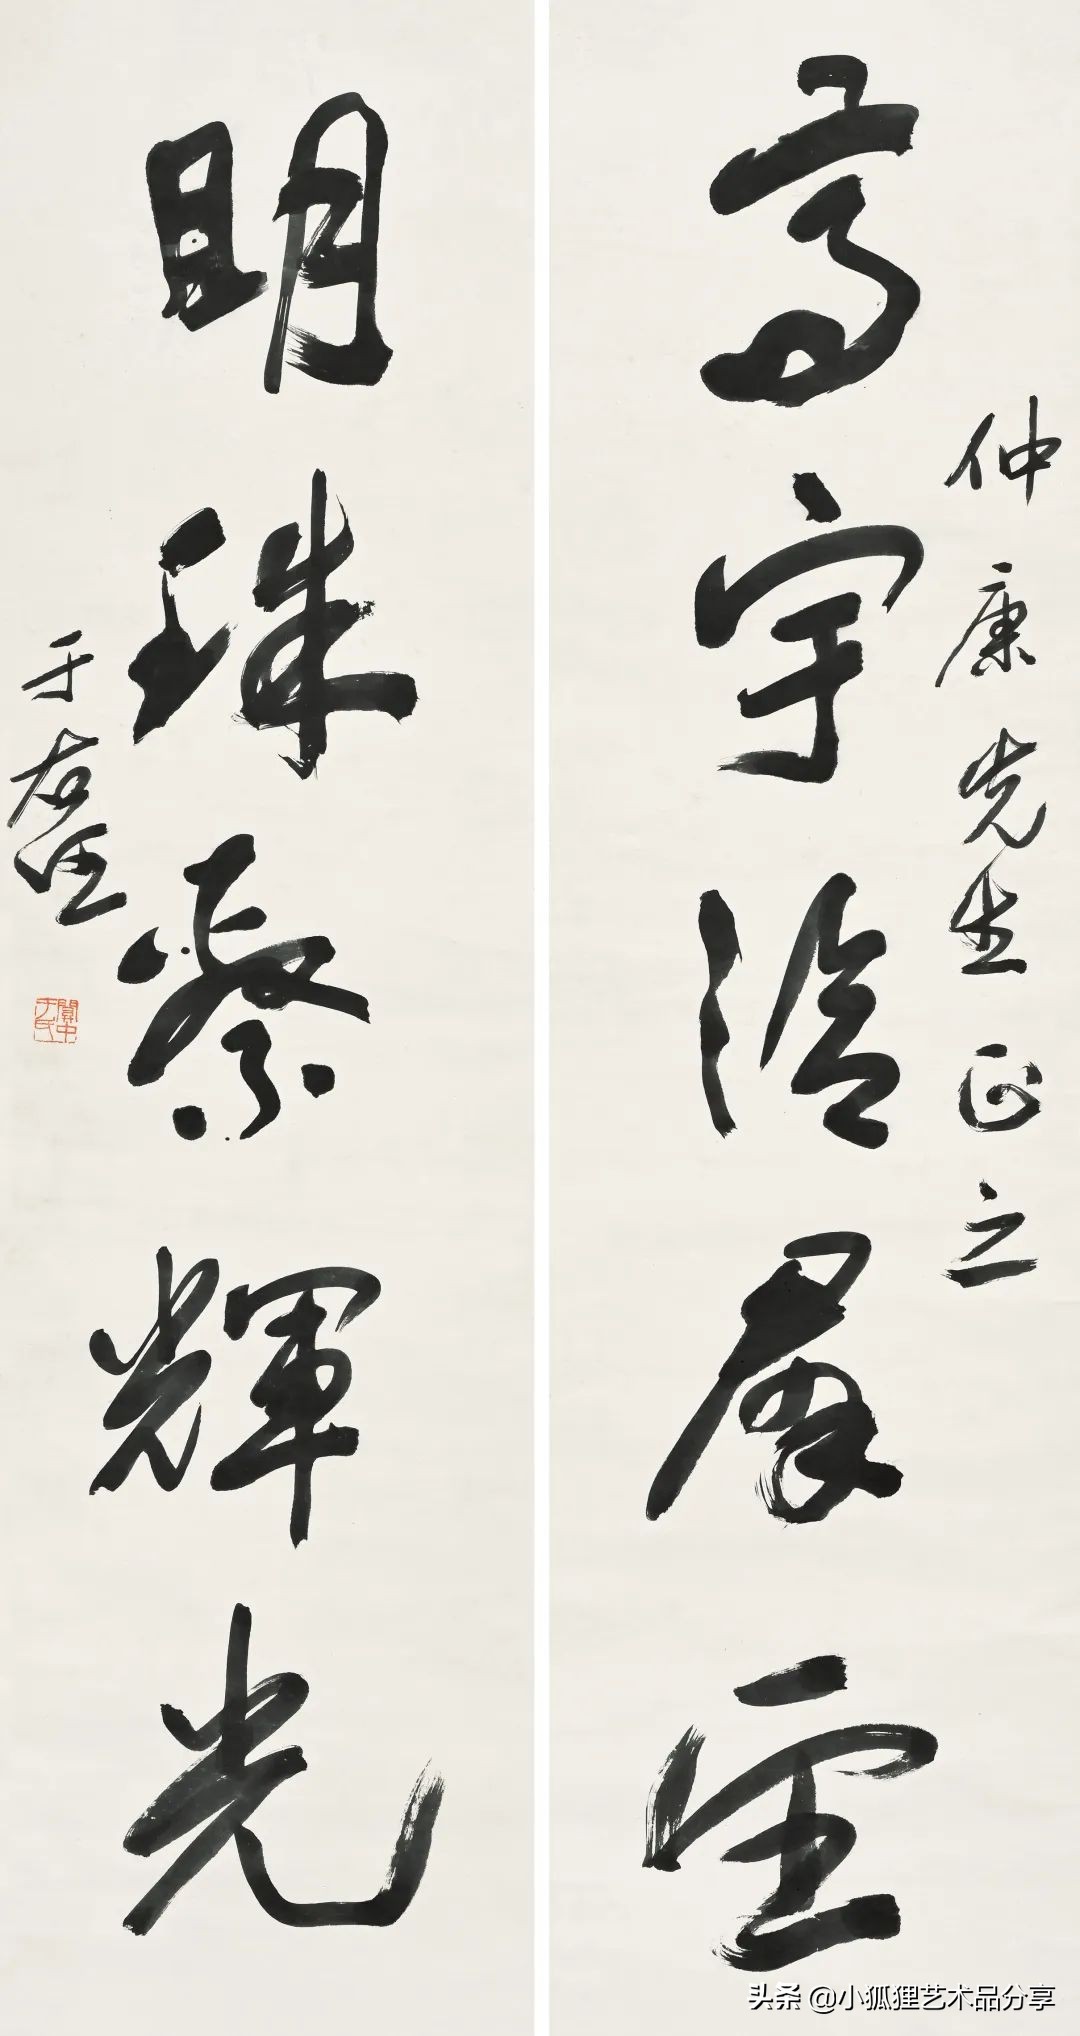 仲康先生正之
高宇洽群
明珠粲輝光
于右任
關中于氏
头条 @小狐狸艺术品分享